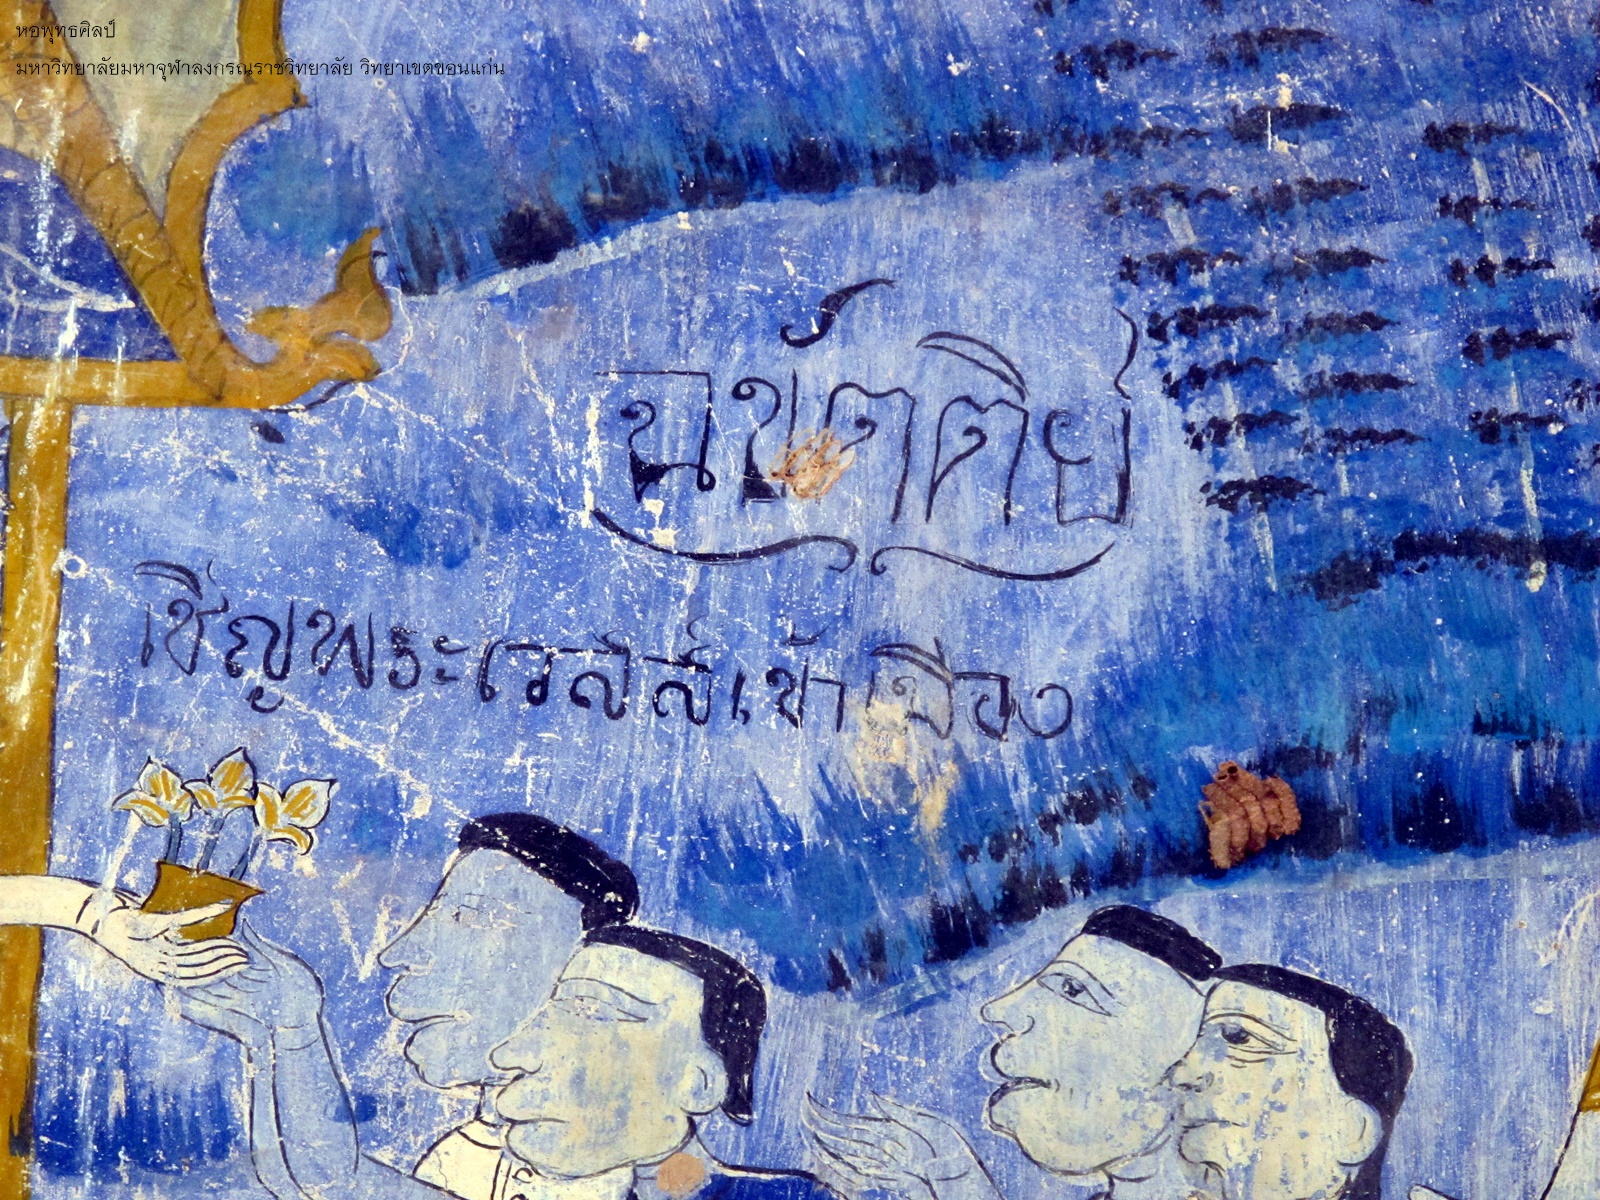 หอพุทธศิลป์
มหาวิทยาลัยมหาจุฬาลงกรณราชวิทยาลัย วิทยาเขตขอนแก่น
ฉขัตติย์
เชิญพระเวสส์เข้าเมือง